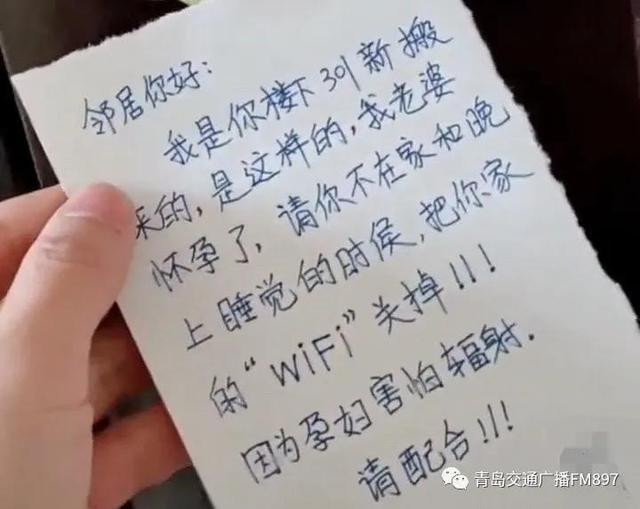 邻居你好：
我是你楼下301新搬
来的，是这样的，我老婆
怀孕了，请你不在家和晚
上睡觉的时侯，把你家
的“WiFi”关掉!!!
因为孕妇害怕辐射.
请配合!!!
青岛交通广播FM897